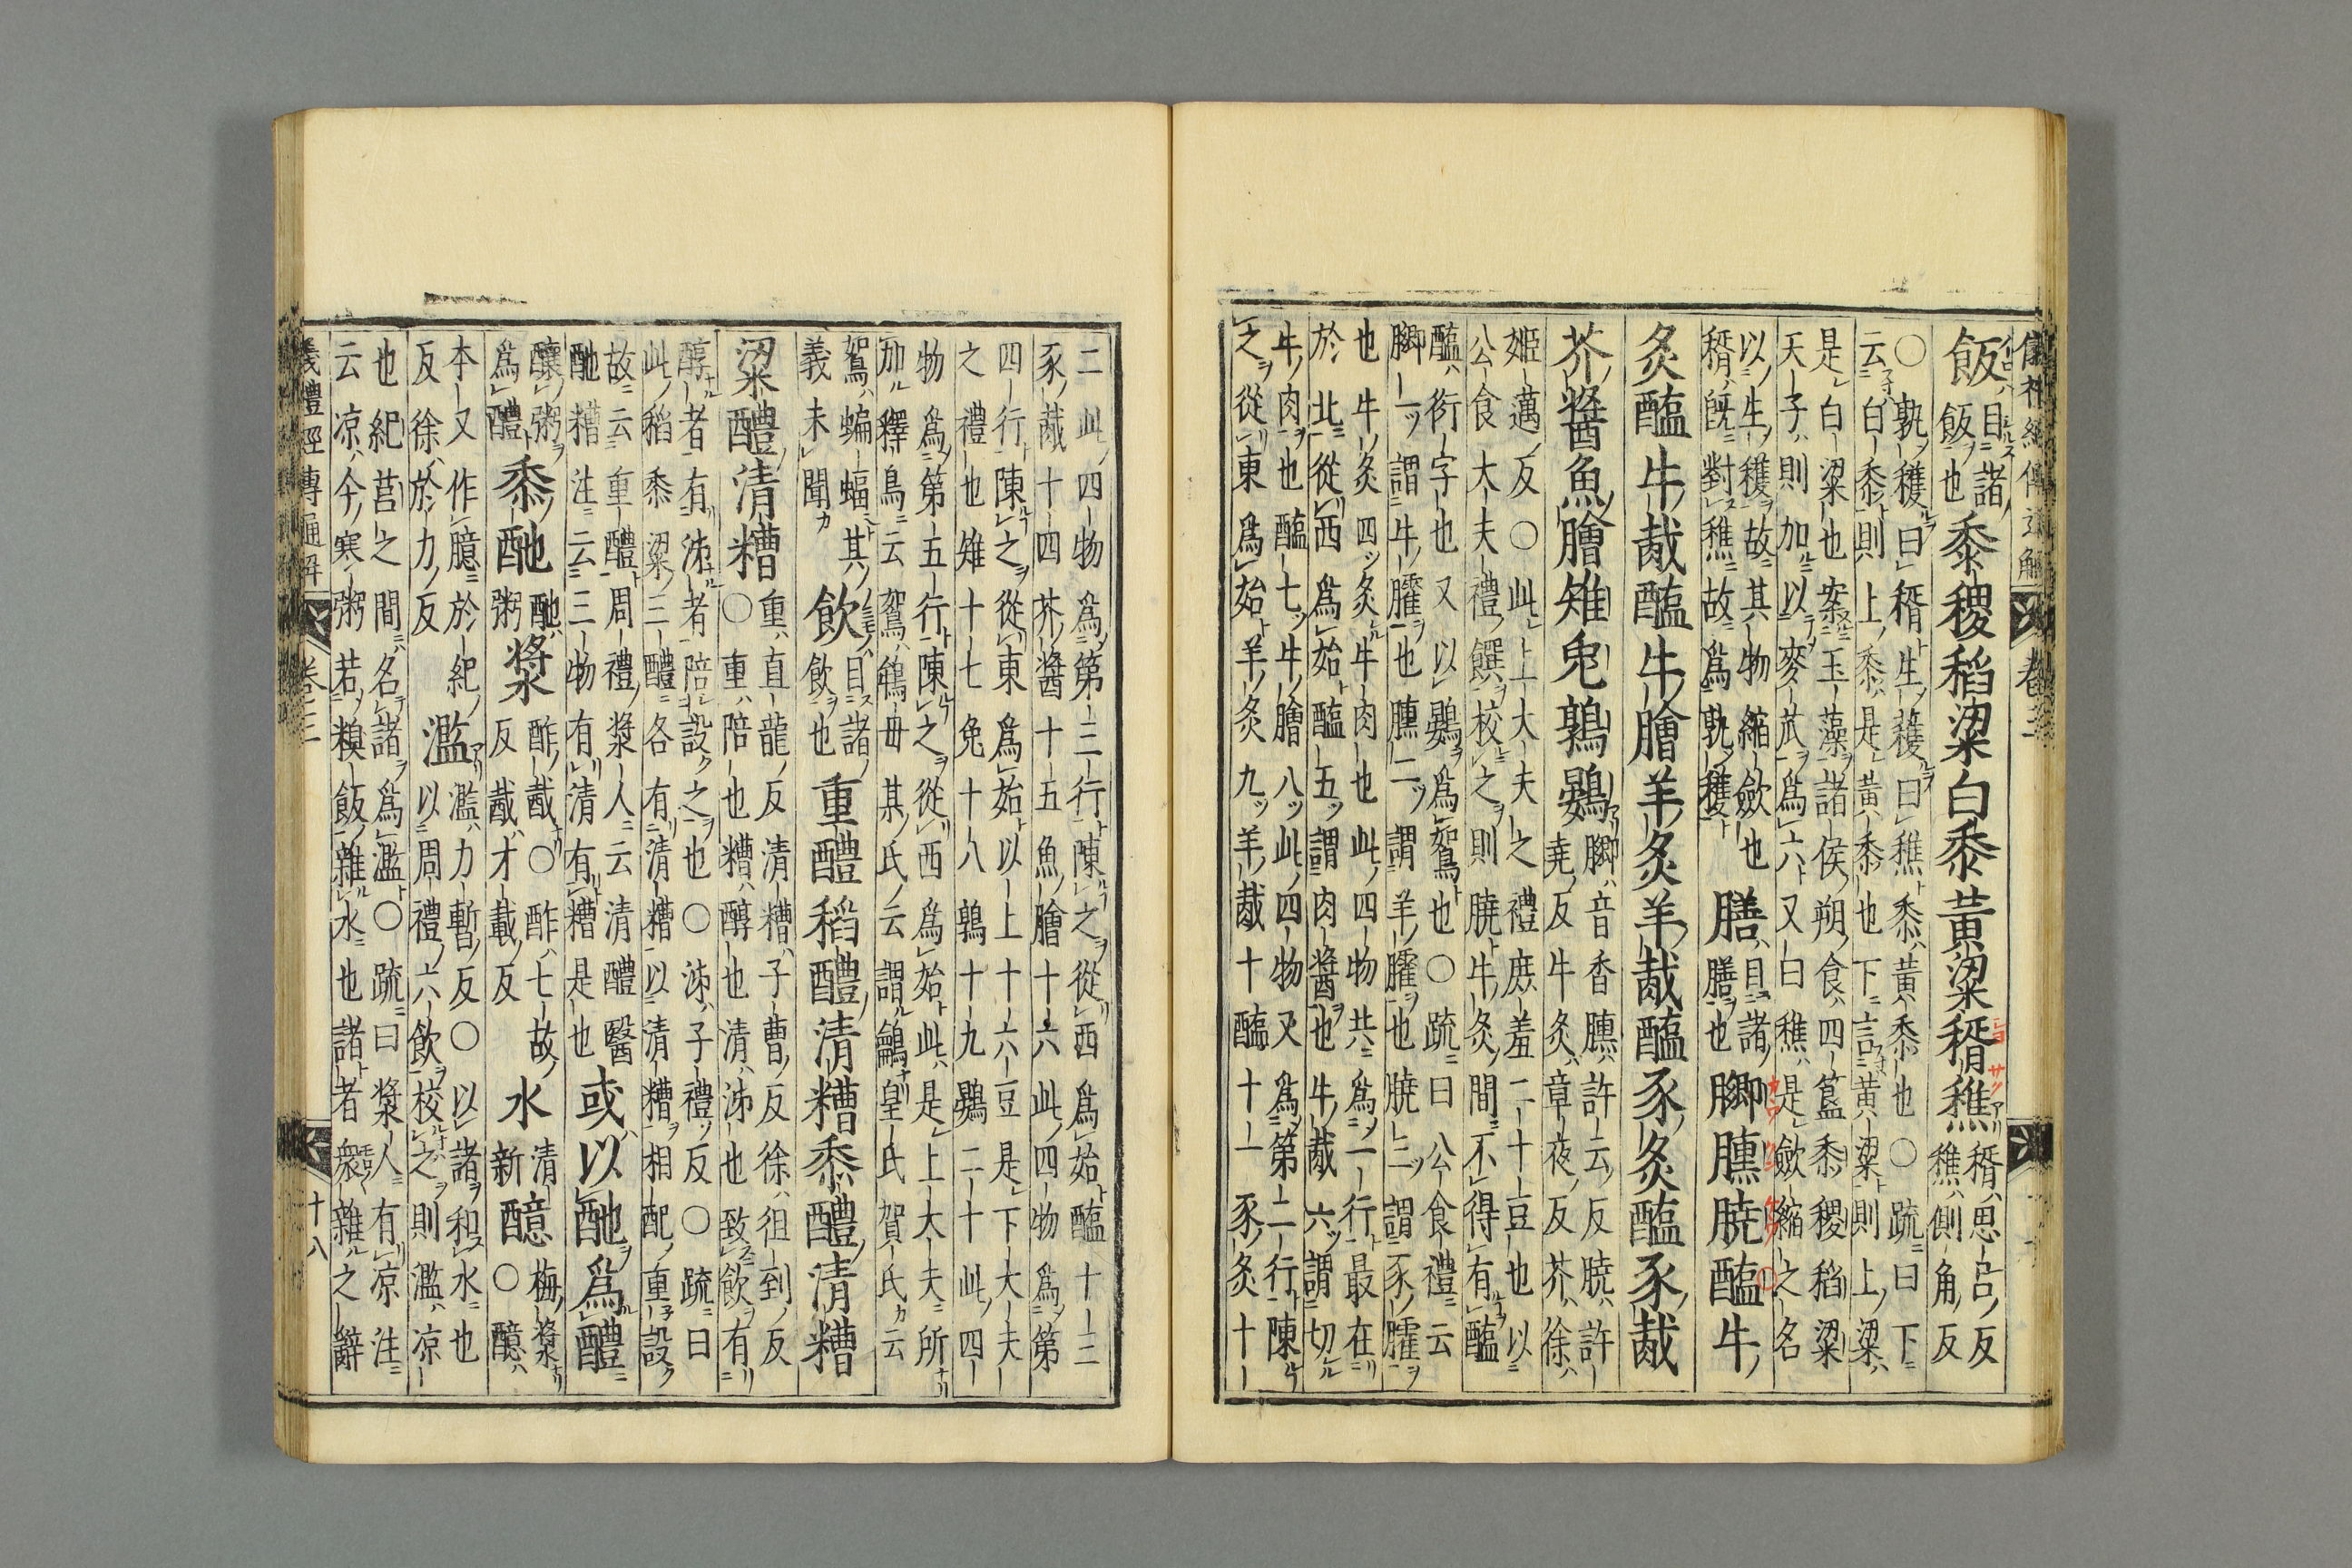 儀禮經傳通解 卷三
飯目諸飯也黍稷稻粱白黍黃粱稰穛稰思呂反
穛側角反
○孰穫曰稰生穫曰穛黍黃黍也○疏曰下
云白黍則上黍是黃黍也下言黃粱則上粱
是白粱也案玉藻諸侯朔食四簋黍稷稻粱
天子則加以麥苽爲六又曰穛是斂縮之名
以生穫故其物縮斂也
稰既對穛故爲孰穫膳目諸膳也膷臐膮醢牛
炙醢牛胾醢牛膾羊炙羊胾醢豕炙醢豕胾
芥醬魚膾雉兔鶉鷃膷音香臐許云反膮許
堯反牛炙章夜反芥徐
姬邁反○此上大夫之禮庶羞二十豆也以
公食大夫禮饌校之則膮牛炙間不得有醢
醢衍字也又以鷃爲鴽也○疏曰公食禮云
膷一謂牛臛也臐二謂羊臛也膮三謂豕臛
也牛炙四炙牛肉也此四物共爲一行最在
於北從西爲始醢五謂肉醬也牛胾六謂切
牛肉也醢七牛膾八此四物又爲第二行陳
之從東爲始羊炙九羊胾十醢十一豕炙十
二此四物爲第三行陳之從西爲始醢十三
豕胾十四芥醬十五魚膾十六此四物爲第
四行陳之從東爲始以上十六豆是下大夫
之禮也雉十七兔十八鶉十九鷃二十此四
物爲第五行陳之從西爲始此是上大夫所
加釋鳥云鴽鴾毋其氏云謂鸙皇氏賀氏云
鴽蝙蝠其
義未聞飲目諸飲也重醴稻醴清糟黍醴清糟
粱醴清糟重直龍反清糟子曹反徐徂到反
○重陪也糟醇也清泲也致飲有
醇者有泲者陪設之也○泲子禮反○疏曰
此稻黍粱三醴各有清糟以清糟相配重設
故云重醴周禮漿人云清醴醫
酏糟注云三物有清有糟是也或以酏爲醴
釀粥爲醴黍酏酏粥漿酢胾○酢七故反胾才載反水清新醷梅漿○醷
本又作臆於紀
反徐於力反濫濫力暫反○以諸和水也
以周禮六飲校之則濫凉
也紀莒之間名諸爲濫○疏曰漿人有凉注
云凉今寒粥若糗飯雜水也諸者衆雜之辭
義禮經傳通解 卷三 十八